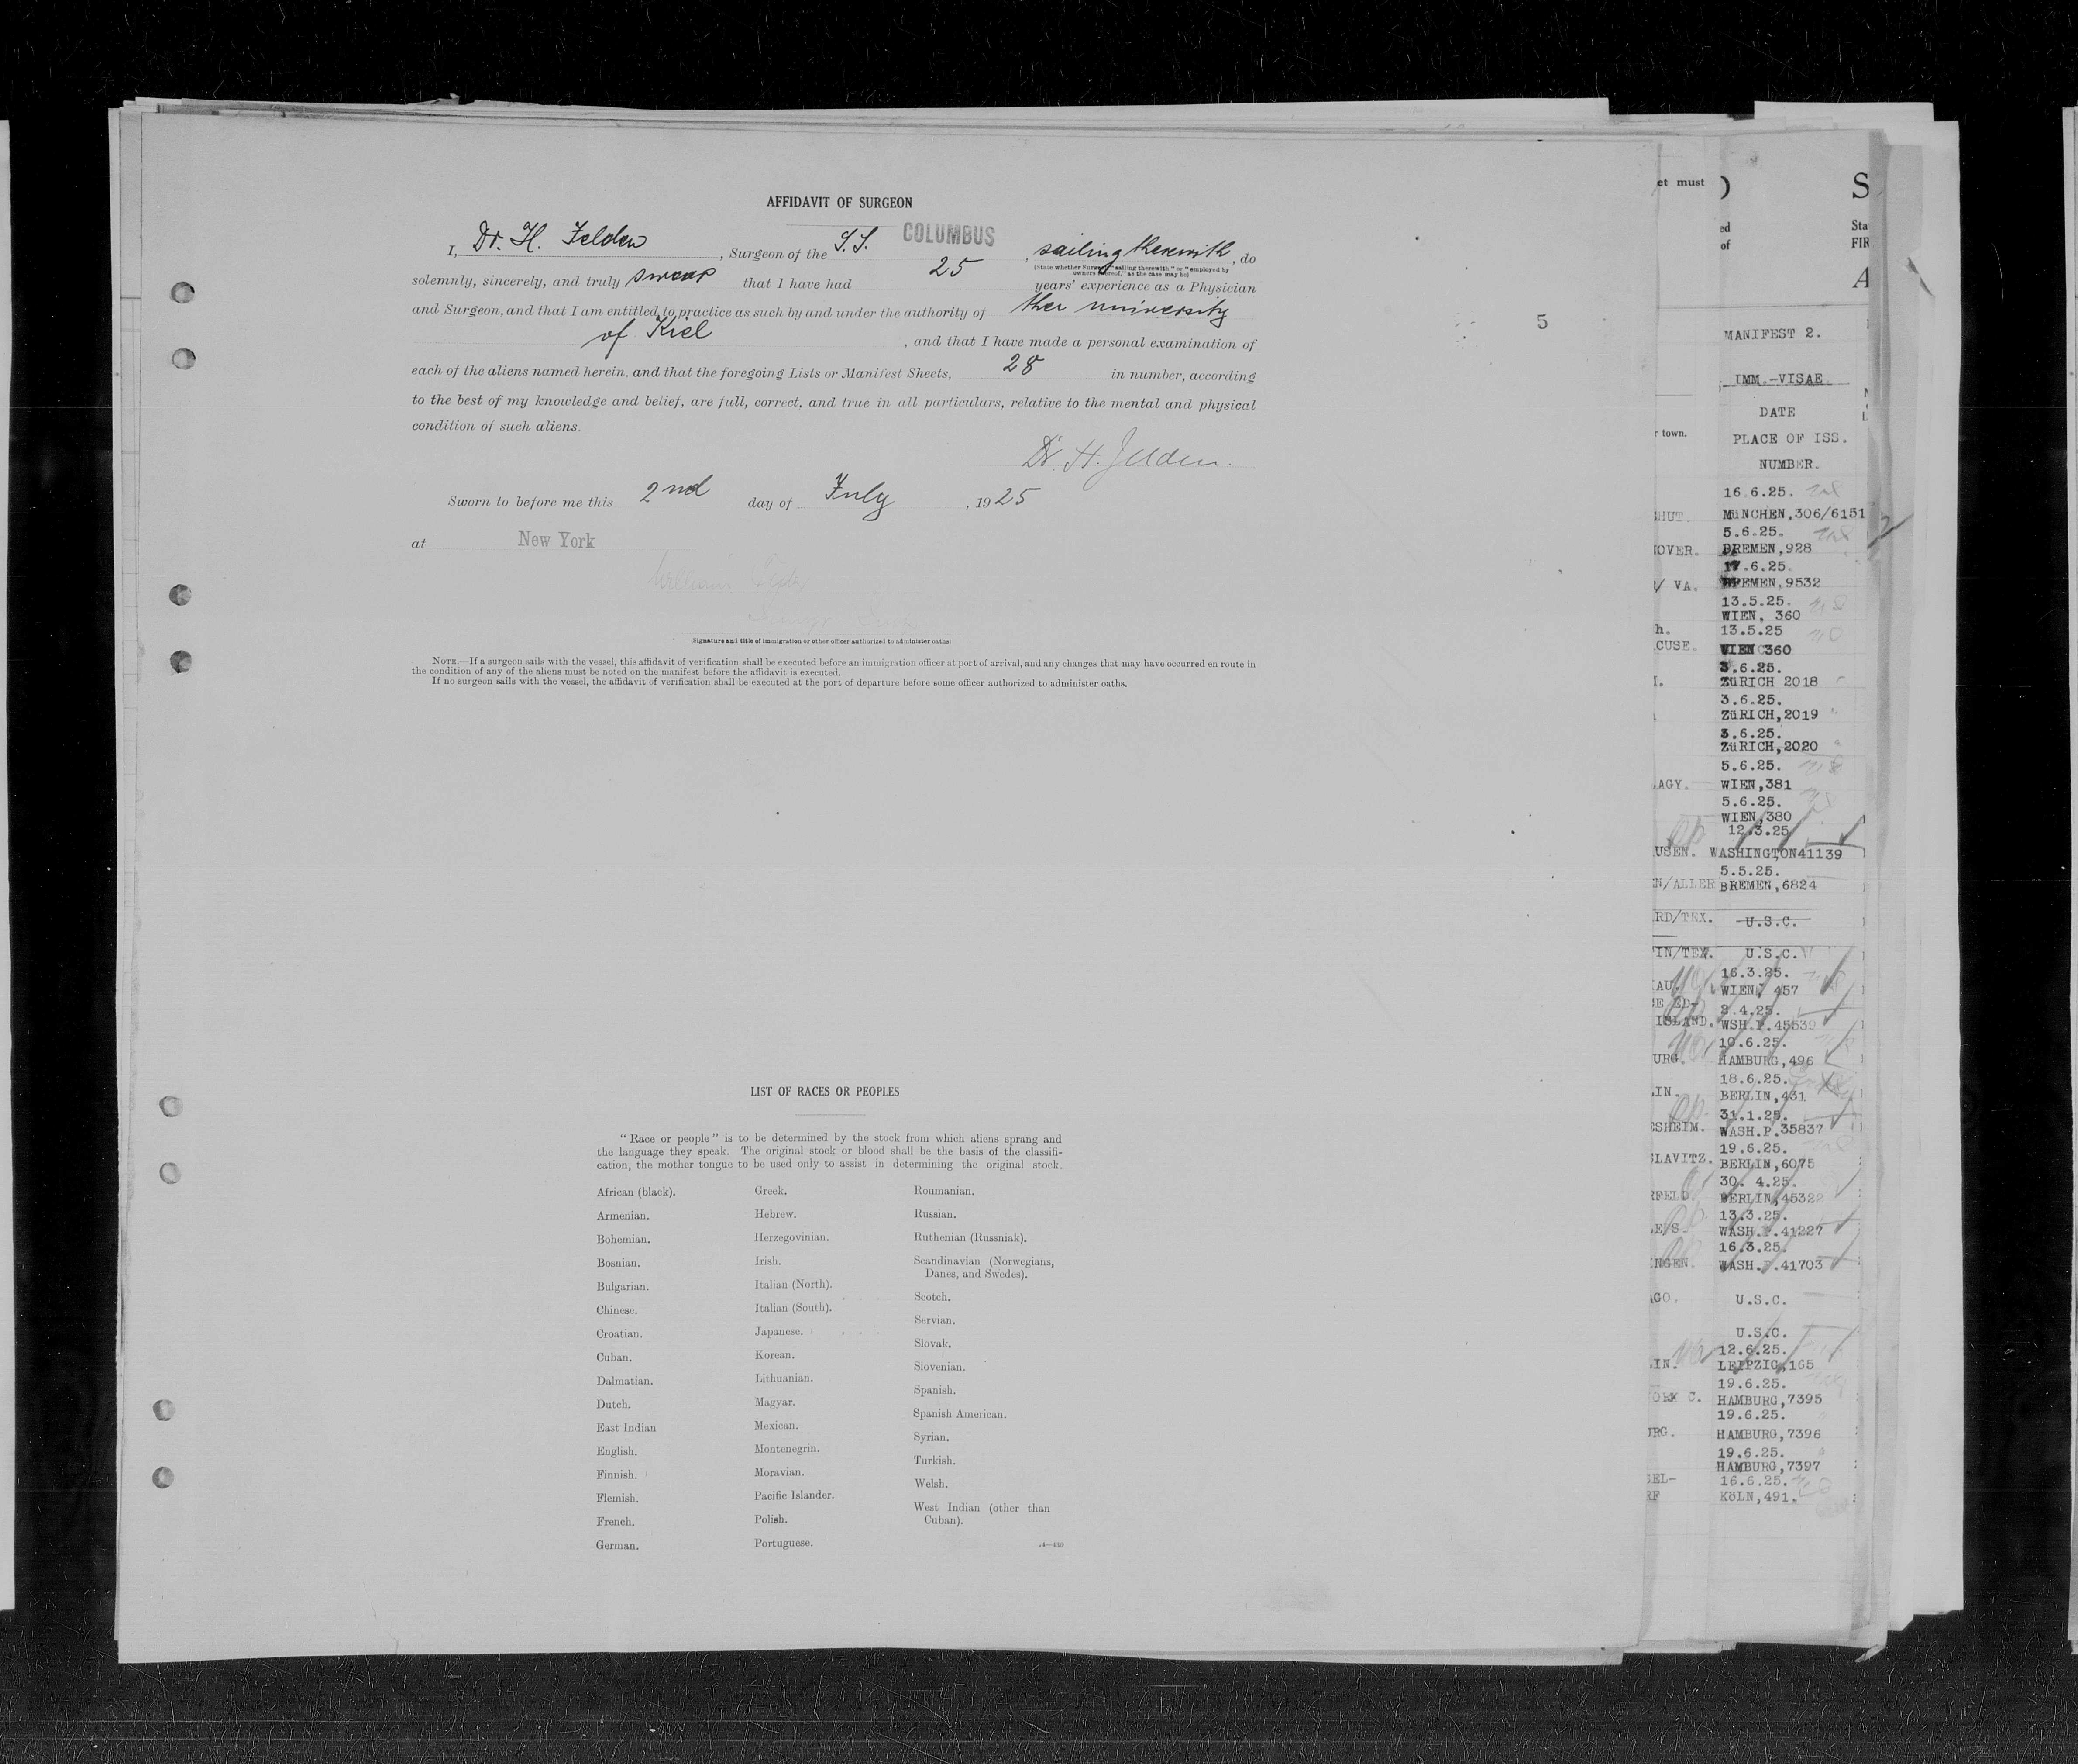 AFFIDAVIT OF SURGEON
I, Dr. H. Jelden, Surgeon of the S.S. COLUMBUS, sailing therewith, do
(State whether Surgeon "sailing therewith" or "employed by
owners thereof," as the case may be)
solemnly, sincerely, and truly swear that I have had 25 years' experience as a Physician
and Surgeon, and that I am entitled to practice as such by and under the authority of ther university
of Kiel, and that I have made a personal examination of
each of the aliens named herein, and that the foregoing Lists or Manifest Sheets, 28 in number, according
to the best of my knowledge and belief, are full, correct, and true in all particulars, relative to the mental and physical
condition of such aliens.
Dr. H. Jelden.
Sworn to before me this 2nd day of July, 1925
at New York
William
(Signature and title of immigration or other officer authorized to administer oaths)
NOTE.—If a surgeon sails with the vessel, this affidavit of verification shall be executed before an immigration officer at port of arrival, and any changes that may have occurred en route in
the condition of any of the aliens must be noted on the manifest before the affidavit is executed.
If no surgeon sails with the vessel, the affidavit of verification shall be executed at the port of departure before some officer authorized to administer oaths.
5
LIST OF RACES OR PEOPLES
"Race or people" is to be determined by the stock from which aliens sprang and
the language they speak. The original stock or blood shall be the basis of the classifi-
cation, the mother tongue to be used only to assist in determining the original stock.
African (black).
Armenian.
Bohemian.
Bosnian.
Bulgarian.
Chinese.
Croatian.
Cuban.
Dalmatian.
Dutch.
East Indian
English.
Finnish.
Flemish.
French.
German.
Greek.
Hebrew.
Herzegovinian.
Irish.
Italian (North).
Italian (South).
Japanese.
Korean.
Lithuanian.
Magyar.
Mexican.
Montenegrin.
Moravian.
Pacific Islander.
Polish.
Portuguese.
Roumanian.
Russian.
Ruthenian (Russniak).
Scandinavian (Norwegians,
Danes, and Swedes).
Scotch.
Servian.
Slovak.
Slovenian.
Spanish.
Spanish American.
Syrian.
Turkish.
Welsh.
West Indian (other than
Cuban).
et must
r town.
HUT.
OVER.
/ VA.
h.
CUSE.
AGY.
USEN.
N/ALLER
RD/TEX.
IN/TEX.
AU.
E ED-
ISLAND.
URG.
LIN.
SHEIM.
LAVITZ.
RFELD
LE/S.
NGEN.
GO.
IN.
ORK C.
RG.
SEL-
RF
ed
of
S
Sta
FIR
A
MANIFEST 2.
IMM.-VISAE
DATE
PLACE OF ISS.
NUMBER.
16.6.25.
MüNCHEN,306/6151
5.6.25.
BREMEN,928
17.6.25.
BREMEN,9532
13.5.25.
WIEN, 360
13.5.25
WIEN 360
3.6.25.
ZüRICH 2018
3.6.25.
ZüRICH,2019
3.6.25.
ZüRICH,2020
5.6.25.
WIEN,381
5.6.25.
WIEN,380
12.3.25
WASHINGTON41139
5.5.25.
BREMEN,6824
U.S.C.
U.S.C.
16.3.25.
WIEN, 457
2.4.25.
WSH.P.45539
10.6.25.
HAMBURG,496
18.6.25.
BERLIN,431
31.1.25.
WASH.P.35837
19.6.25.
BERLIN,6075
30. 4.25.
BERLIN,45322
13.3.25.
WASH.P.41227
16.3.25.
WASH.P.41703
U.S.C.
U.S.C.
12.6.25.
LEIPZIG,165
19.6.25.
HAMBURG,7395
19.6.25.
HAMBURG,7396
19.6.25.
HAMBURG,7397
16.6.25.
KöLN,491.